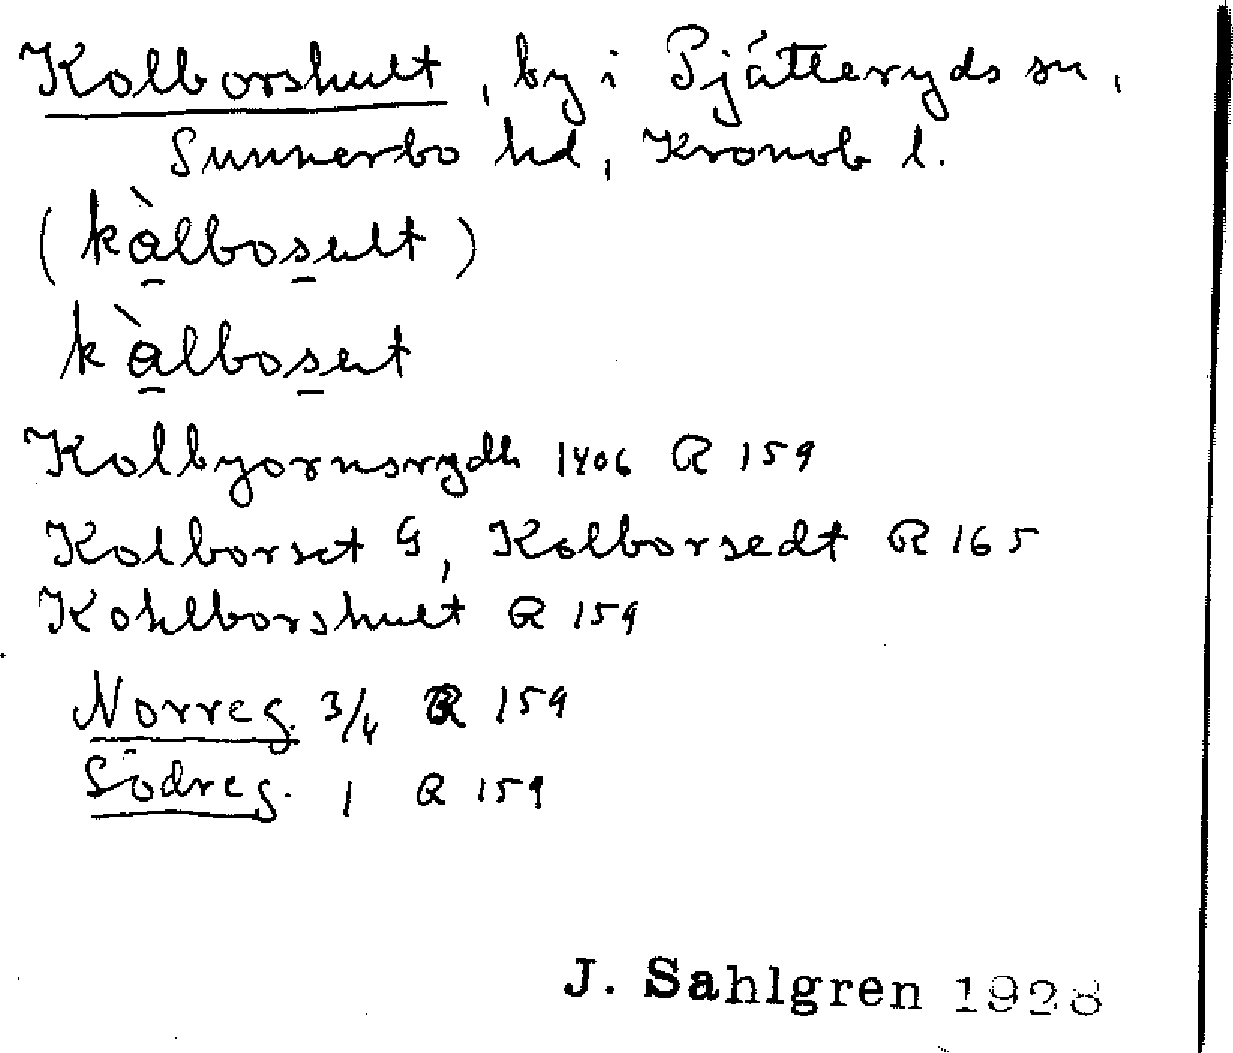 Kolborshult, by i Pjätteryds sn,
Sunnerbo hd, Kronob l.
(kàlbosult)
kàlbosut
Kolbyornsrydh 1406 R 159
Kolborset G, Kolborsedt R 165
Kohlborshult R 159
Norreg. 3/4 R 159
Södreg. 1 R 159
J. Sahlgren 1928